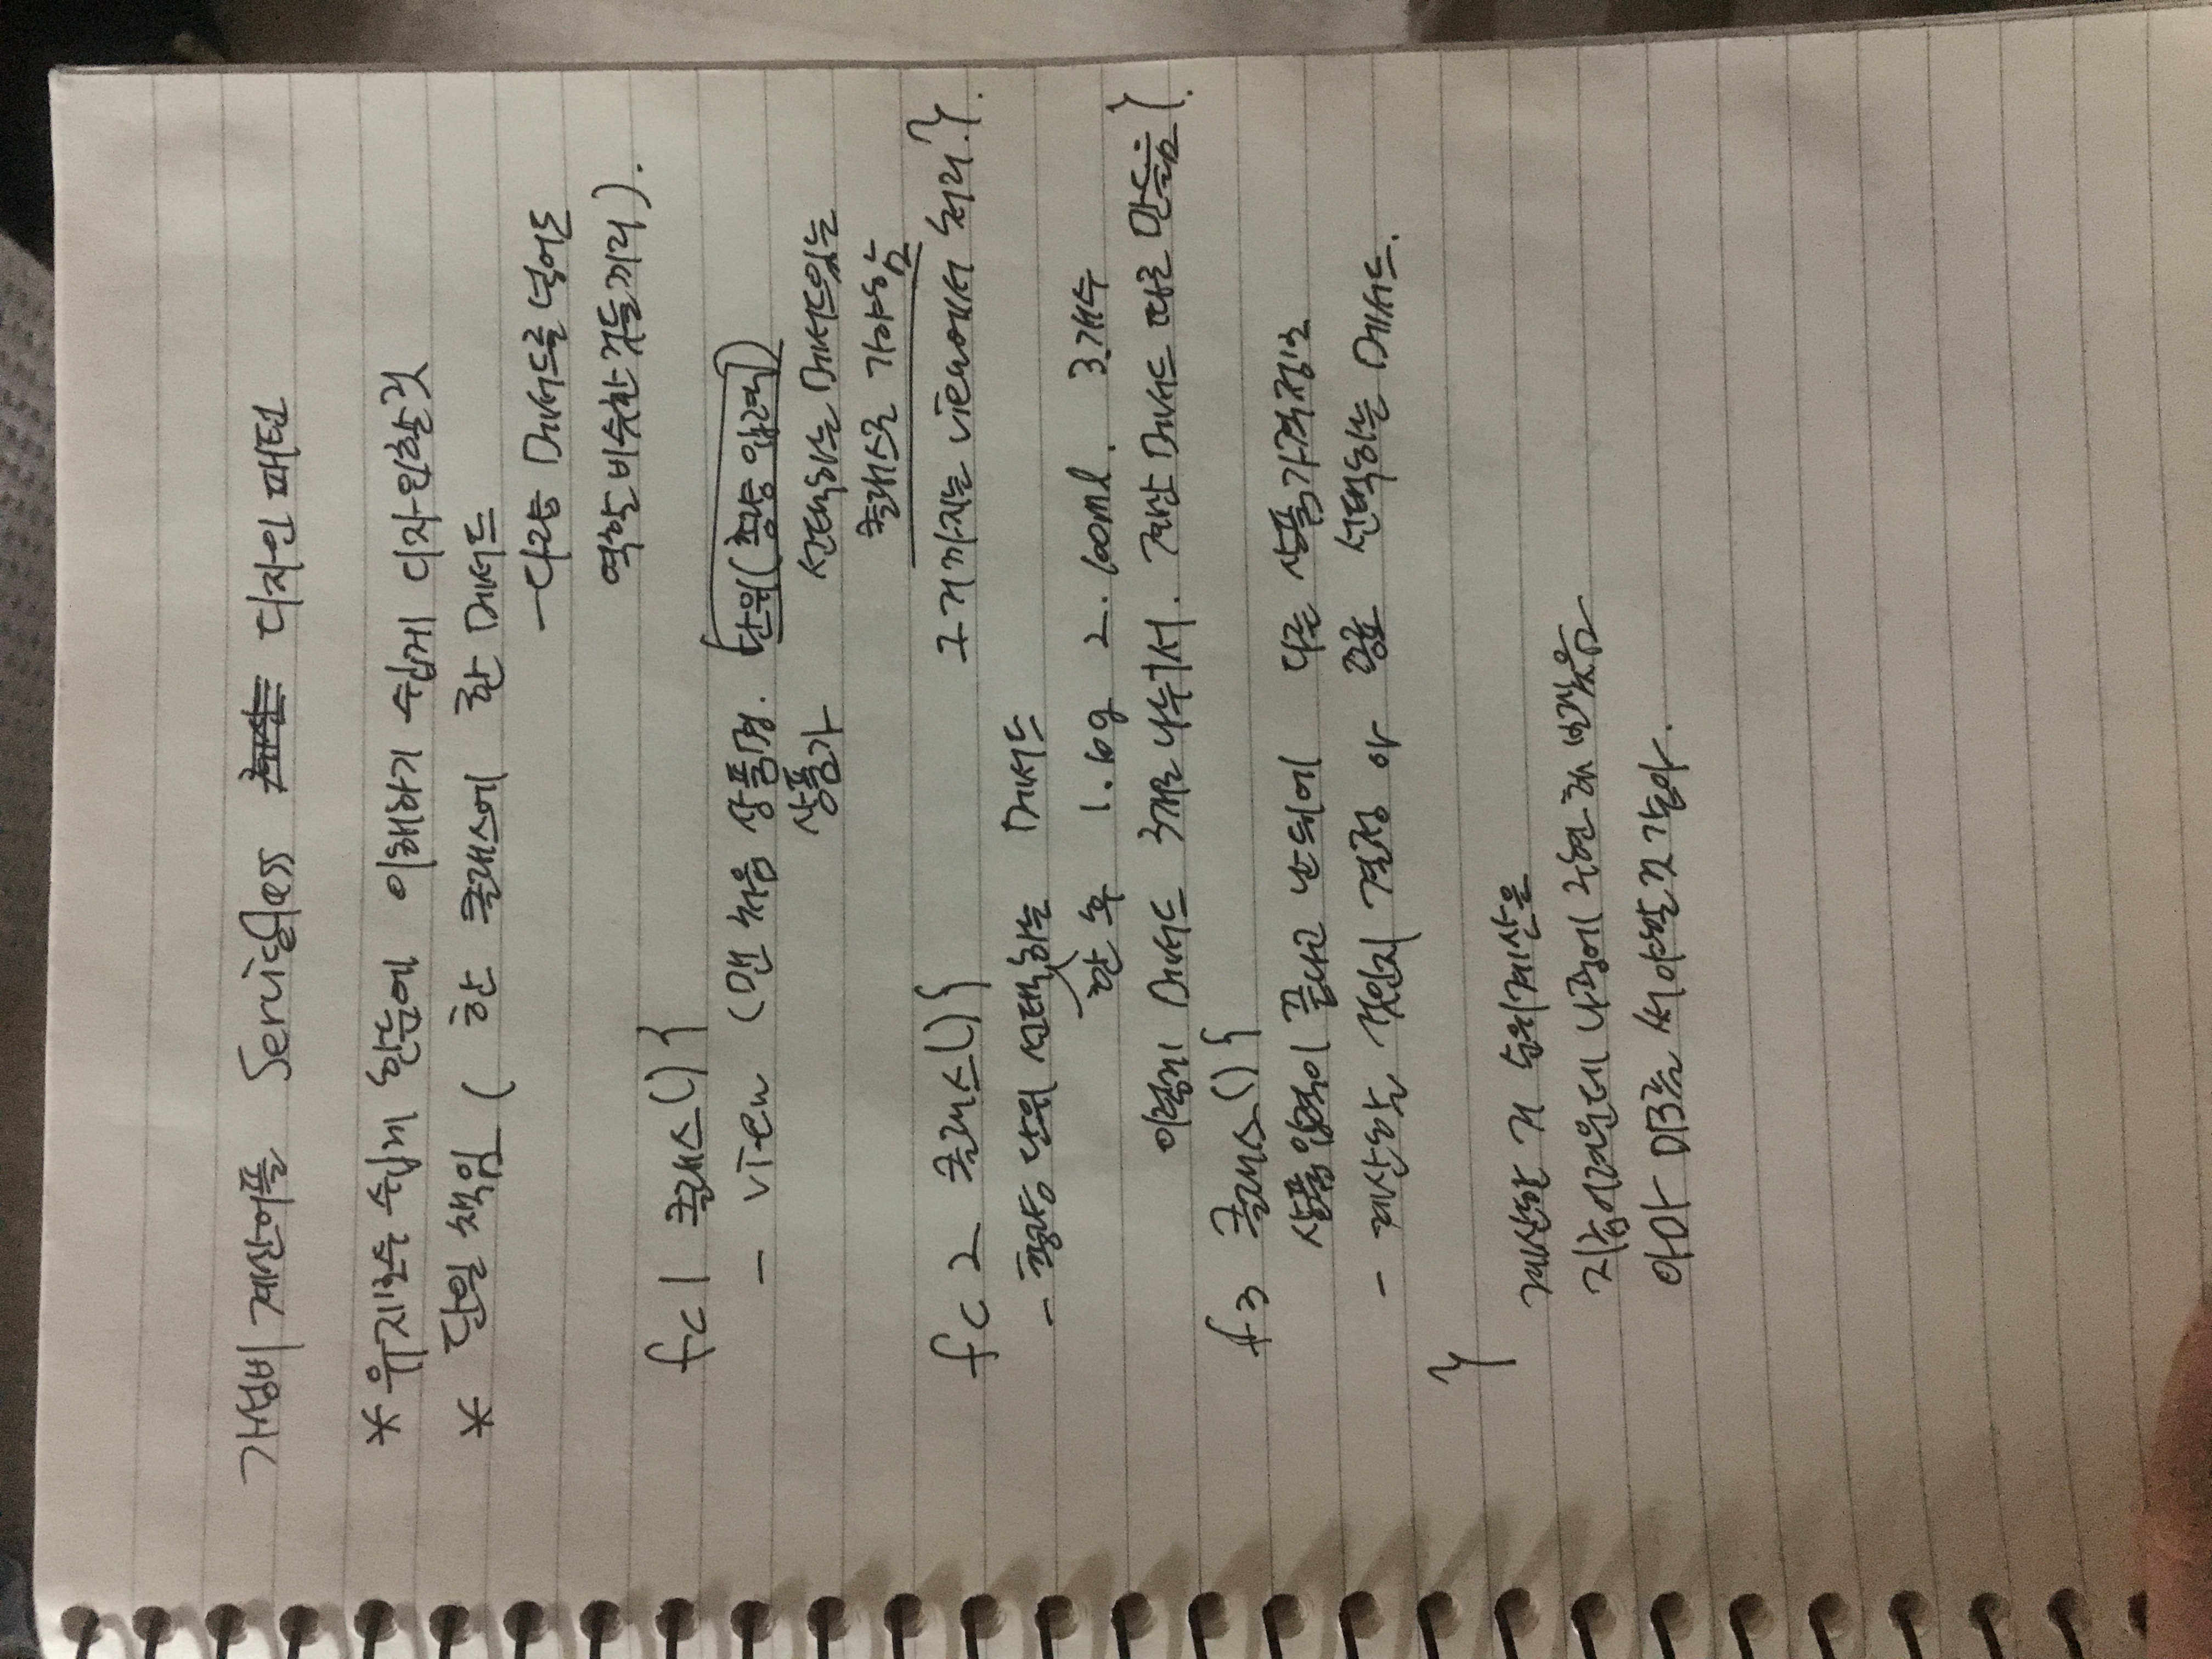 가성비 계산어플 Service class 디자인 패턴
* 유지보수 쉽게 한눈에 이해하기 쉽게 디자인할것
* 단일 책임 ( 한 클래스에 한 메서드
- 다량 메서드를 넣어도
역할 비슷한 것들끼리 ).
fc 1 클래스 () {
- view (맨 처음 상품명. 단위(중량 입력)
상품가 선택하는 메서드있는
클래스로 가야함
fc 2 클래스 () { 그거까지는 view에서 처리. }.
- 중량 단위 선택하는 메서드
한 후 1. 10g 2. 100ml. 3. 개수
이렇게 메서드 3개로 나눠서. 계산 메서드 따로 만들음 }.
f 3 클래스 () {
상품입력이 끝나고 난 뒤에 다른 상품가격정보
- 계산할 것인지 결정 아 종료 선택하는 메서드.
}
계산한 거 순위계산은
지금어려운데 나중에 구현해 보겠음
아마 DB를 써야할것 같아.